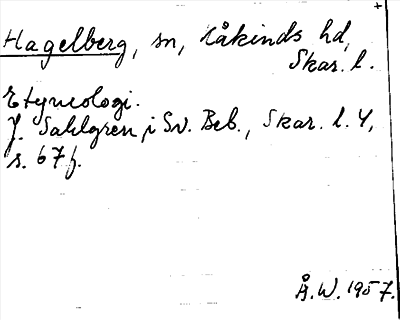 Hagelberg, sn, Kåkinds hd,
Skar. l.
Etymologi.
J. Sahlgren i Sv. Beb., Skar. l. 4,
s. 67 f.
Å. W. 1957.